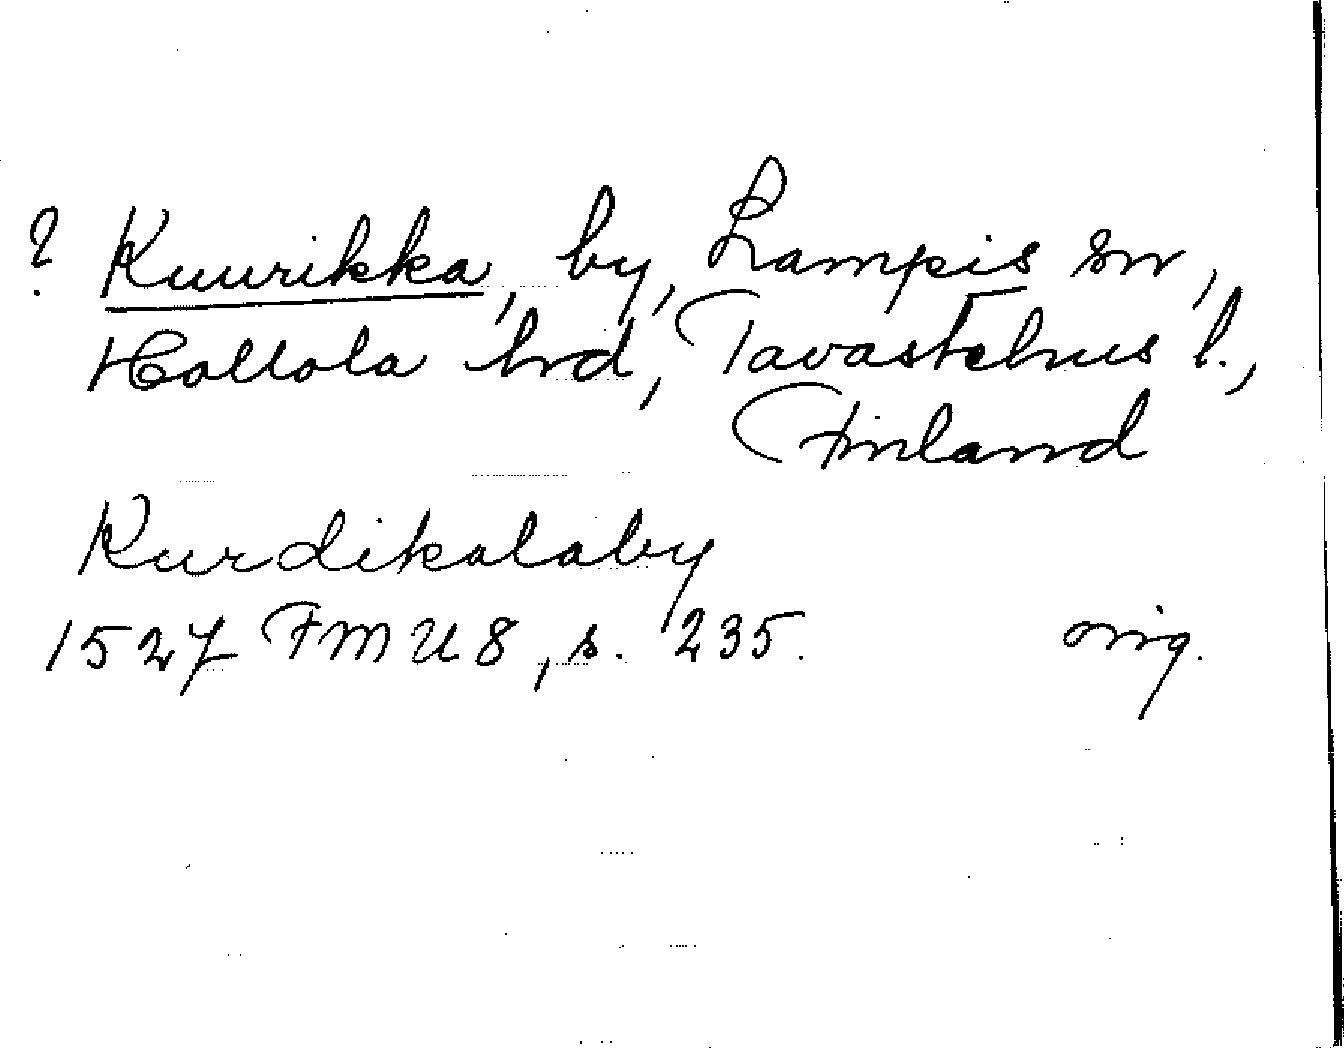 ? Kuurikka, by, Lampis sn,
Hollola hrd, Tavastehus l.,
Finland
Kurdikalaby
1527 FMU 8, s. 235. orig.